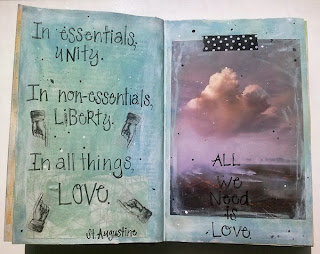 In essentials,
UNiTy.
In non-essentials,
LiBERTY.
In all things,
LOVE.
St. Augustine
ALL
We
Need
Is
Love